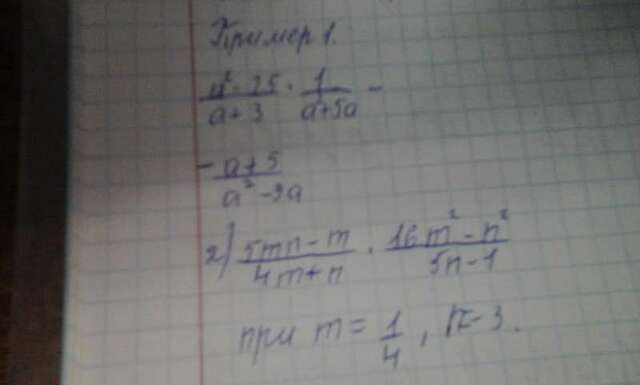 Пример 1.
a² - 25 / a + 3 · 1 / a + 5a -
- a + 5 / a² - 3a
2) 5mn - m / 4m + n · 16m² - n² / 5n - 1
при m = 1/4, n = 3.